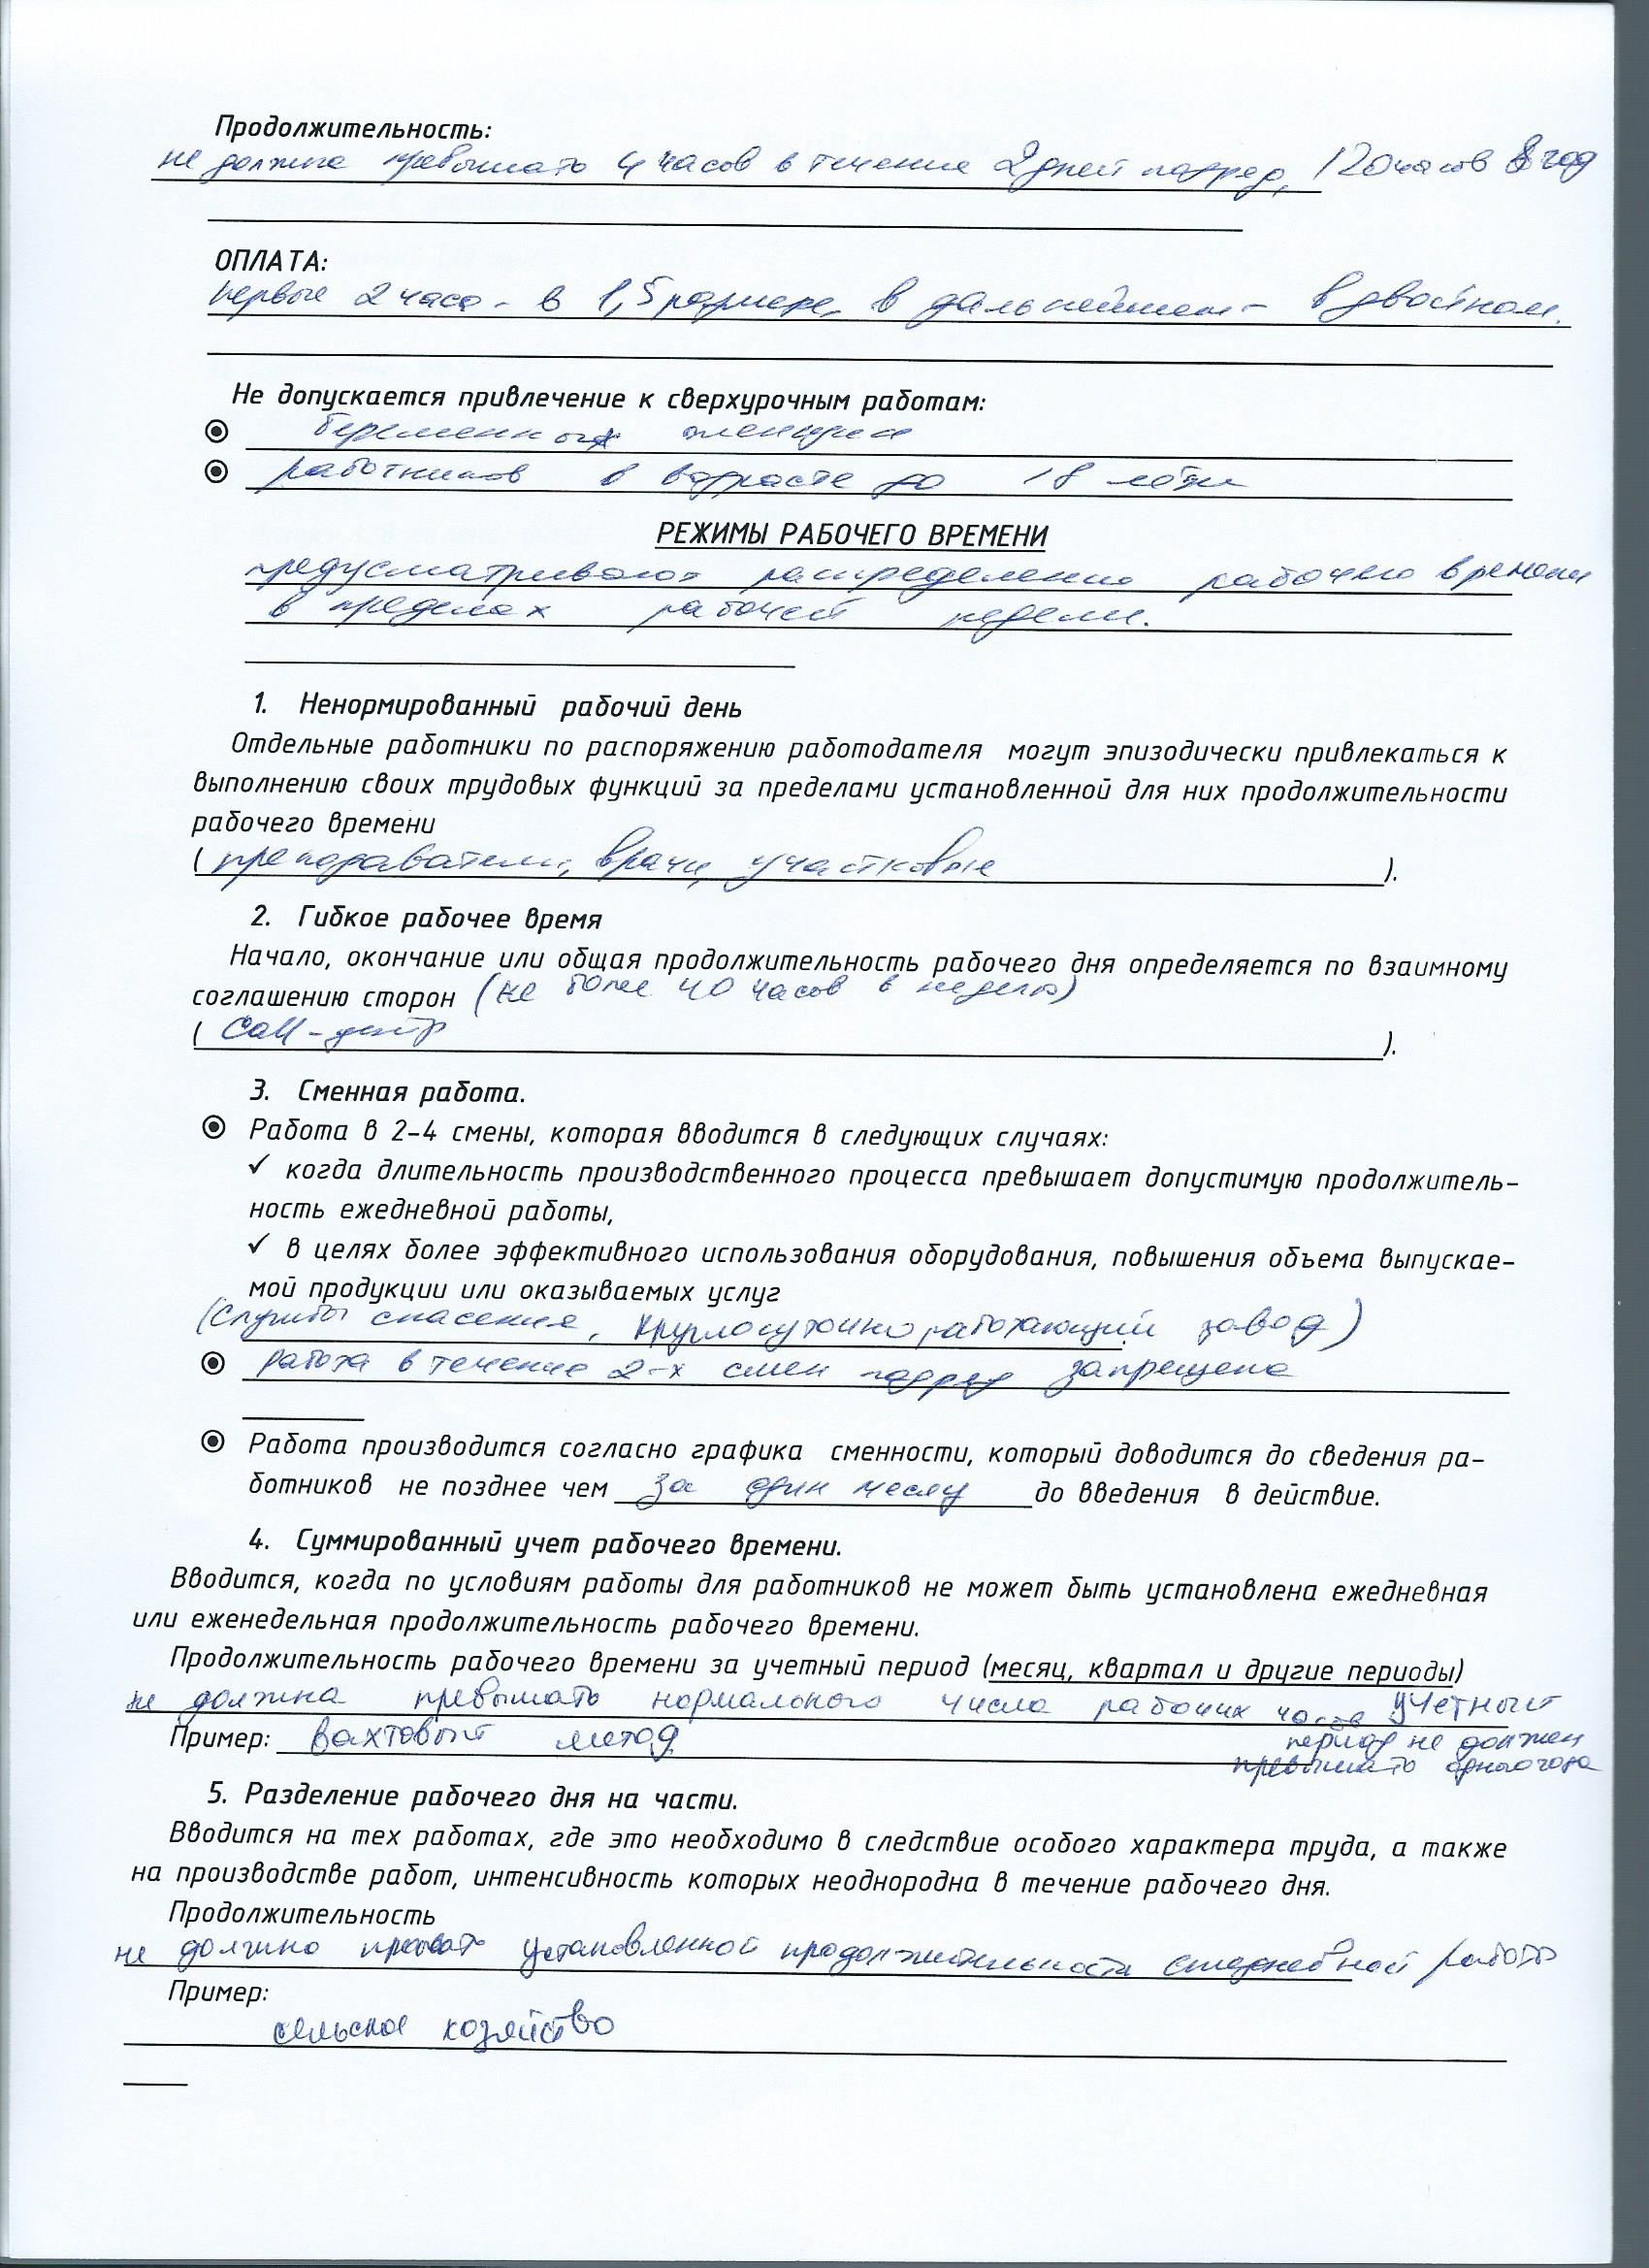 Продолжительность:
не должна превышать 4 часов в течение 2 дней подряд, 120 часов в год
ОПЛАТА:
первые 2 часа - в 1,5 размере, в дальнейшем - в двойном.
Не допускается привлечение к сверхурочным работам:
беременных женщин
работников в возрасте до 18 лет
РЕЖИМЫ РАБОЧЕГО ВРЕМЕНИ
предусматривают распределение рабочего времени
в пределах рабочей недели.
1. Ненормированный рабочий день
Отдельные работники по распоряжению работодателя могут эпизодически привлекаться к
выполнению своих трудовых функций за пределами установленной для них продолжительности
рабочего времени
( преподаватели, врачи, участковые ).
2. Гибкое рабочее время
Начало, окончание или общая продолжительность рабочего дня определяется по взаимному
соглашению сторон (не более 40 часов в неделю)
( Call-центр ).
3. Сменная работа.
Работа в 2-4 смены, которая вводится в следующих случаях:
✓ когда длительность производственного процесса превышает допустимую продолжитель-
ность ежедневной работы,
✓ в целях более эффективного использования оборудования, повышения объема выпускае-
мой продукции или оказываемых услуг
(Службы спасения, круглосуточно работающий завод)
работа в течение 2-х смен подряд запрещена
Работа производится согласно графика сменности, который доводится до сведения ра-
ботников не позднее чем за один месяц до введения в действие.
4. Суммированный учет рабочего времени.
Вводится, когда по условиям работы для работников не может быть установлена ежедневная
или еженедельная продолжительность рабочего времени.
Продолжительность рабочего времени за учетный период (месяц, квартал и другие периоды)
не должна превышать нормального числа рабочих часов учетный
Пример: вахтовый метод период не должен
превышать одного года
5. Разделение рабочего дня на части.
Вводится на тех работах, где это необходимо в следствие особого характера труда, а также
на производстве работ, интенсивность которых неоднородна в течение рабочего дня.
Продолжительность
не должно установленной продолжительности ежедневной работы
Пример:
сельское хозяйство